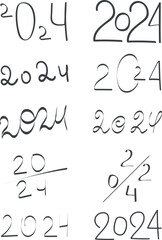 2024 2024
2024 2024
2024 2024
20/24 20/24
2024 2024